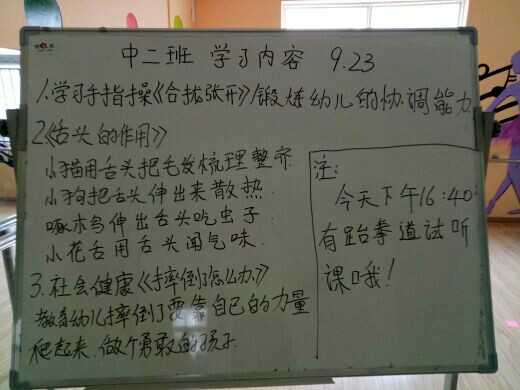 中二班 学习内容 9.23
1.学习手指操《合拢张开》锻炼幼儿的协调能力
2《舌头的作用》
小猫用舌头把毛发梳理整齐
小狗把舌头伸出来散热.
啄木鸟伸出舌头吃虫子.
小花舌用舌头闻气味.
3.社会健康《摔倒了怎么办》
教育幼儿摔倒了要靠自己的力量
爬起来.做个勇敢的孩子
注:
今天下午16:40
有跆拳道试听
课哦!